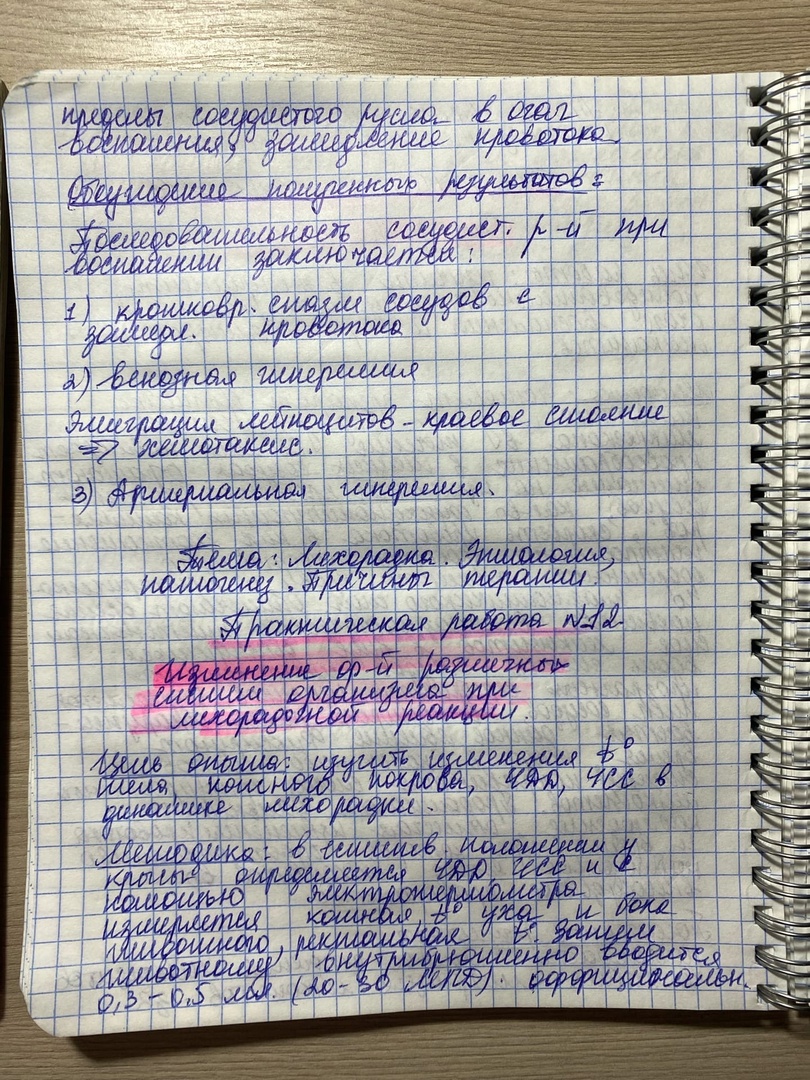 пределы сосудистого русла в очаг
воспаления, замедление кровотока.
Обсуждение полученных результатов:
Последовательность сосудист. р-й при
воспалении заключается:
1) кратковр. спазм сосудов с
замедл. кровотока
2) венозная гиперемия
Эмиграция лейкоцитов - краевое стояние
=> хемотаксис.
3) Артериальная гиперемия.
Тема: Лихорадка. Этиология,
патогенез. Причины терапии.
Практическая работа №12
Изменение ф-й различных
систем организма при
лихорадочной реакции.
Цель опыта: изучить изменения t°
тела, кожного покрова, ЧДД, ЧСС в
динамике лихорадки.
Методика: в положении у
крысы определяется ЧДД, ЧСС и с
помощью электротермометра
измеряется кожная t° уха и бока
животного, ректальная t°. Затем
животному внутрибрюшинно вводится
0,3 - 0,5 мл. (20-30 МПД)